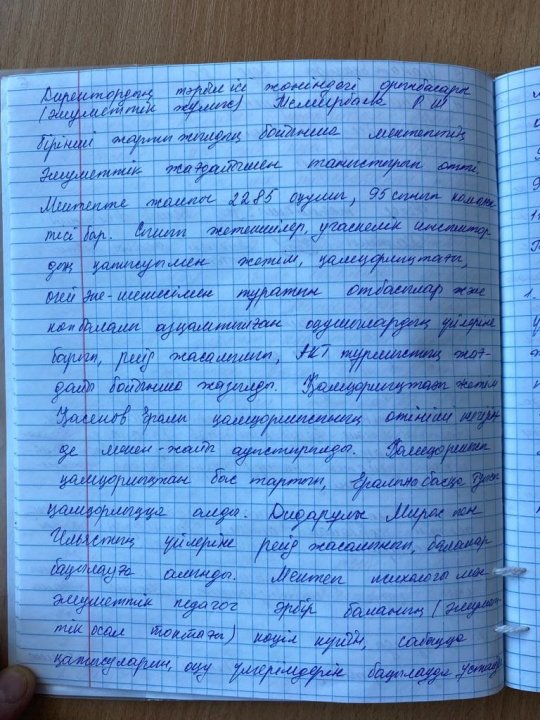 Директордың тәрбие ісі жөніндегі орынбасары
(әлеуметтік жұмыс) Темирбаева Р Ш
бірінші жарты жылдық бойынша мектептің
әлеуметтік жағдайымен таныстырып өтті.
Мектепте жалпы 2285 оқушы, 95 сынып комплек
тісі бар. Сынып жетекшілер, учаскелік инспектор
дың қатысуымен жетім, қамқорлықтағы,
өгей әке-шешесімен тұратын отбасылар және
көпбалалы азқамтылған оқушылардың үйлеріне
барып, рейд жасалынып, АКТ тұрмыстық жағ-
дайы бойынша жазылды. Қамқорлықтағы жетім
Қасенов Ералы қамқоршысының өтініші негізін
де мекен-жайы ауыстырылды. Қамқоршылық
қамқорлықтан бас тартып, Ералыны басқа
қамқорлыққа алды. Дидарұлы Мирас пен
Ильястың үйлеріне рейд жасалынып, балалар
бақылауға алынды. Мектеп психологы мен
әлеуметтік педагог әрбір баланың (әлеумет-
тік осал топтағы) көңіл күйін, сабаққа
қатысуларын, оқу үлгерімдерін бақылауда ұстайды
1.